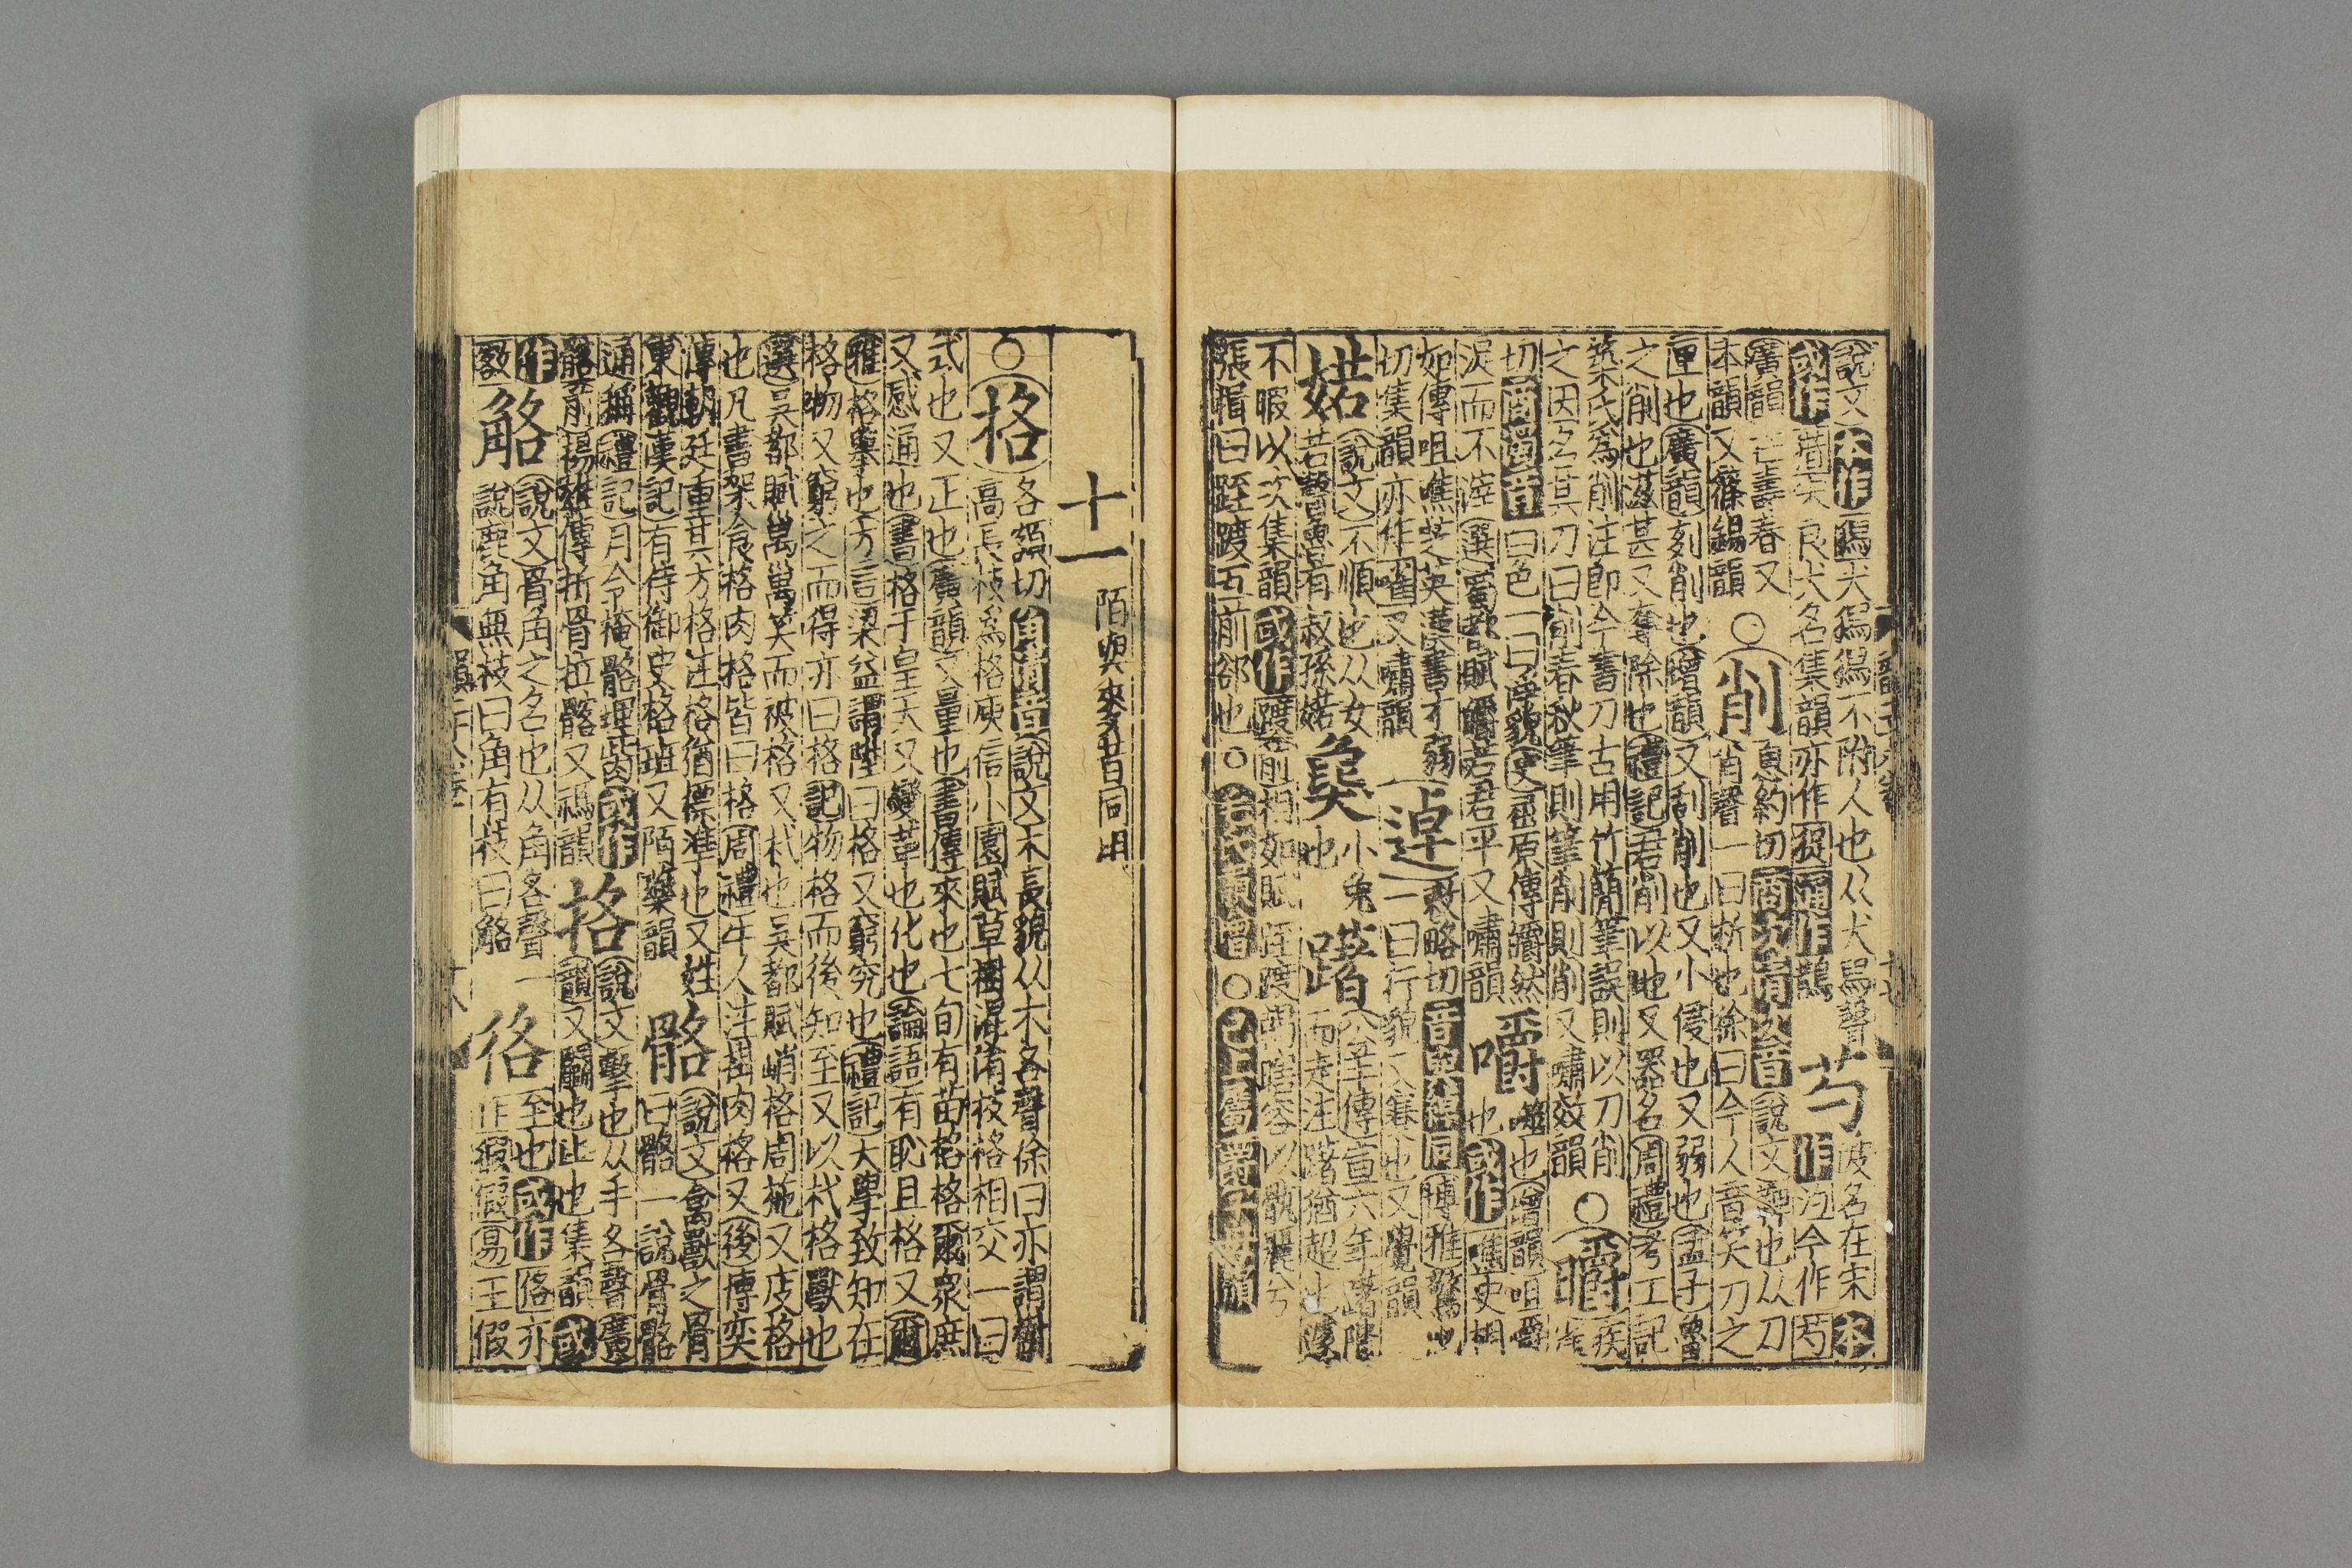 說文本作㹱犬㹱㹱不附人也从犬舄聲
芍
陂名在宋本
國作猎突良犬名集韻亦作猎通作䧿
作汋今作芍
廣韻芒壽春又
本韻又篠錫韻
○削
息約切商次清次音說文鞞也从刀
肖聲一曰析也徐曰今人音笑刀之
匣也廣韻刻削也增韻又刮削也又小侵也又弱也孟子魯
之削也滋甚又奪除也禮記君削以地又器名周禮考工記
築氏爲削注即今書刀古用竹簡筆誤則以刀削
之因名其刀曰削春秋筆則筆削則削又嘯效韻
○皭
疾雀
切商濁音曰色一曰淨貌史屈原傳皭然
泥而不滓選蜀都賦皭若君平又嘯韻
嚼
噬也增韻咀嚼
也國作噍史相
如傳咀噍芝英漢書才弱
切集韻亦作嚾又嘯韻
逴
敕略切音與綽同博雅驚也
一曰行貌又蹇也又覺韻
婼
說文不順也从女
若聲魯有叔孫婼
㲋
小兔
也
踖
公羊傳宣六年踖階
而走注踖猶超也遽
不暇以次集韻國作踱前相如賦跮踱
張揖曰跮踱互前郤也○
○
十一
陌與麥昔同用
○格
各額切角清音說文木長貌从木各聲徐曰亦謂樹
高長枝爲格庾信小園賦草樹混淆枝格相交一曰
式也又正也廣韻又量也書傳來也七旬有苗格格爾衆庶
又感通也書格于皇天又變革也化也論語有恥且格又爾
雅格擧也方言梁益謂陞曰格又窮究也禮記大學致知在
格物又窮之而得亦曰格記物格而後知至又以杙格獸也
選吳都賦萬萬笑而被格又杙也吳都賦峭格周施又庋格
也凡書架食格肉格皆曰格周禮牛人注挂肉格又後傳奕
傳朝廷重其方格注格猶標準也又姓
東觀漢記有侍御史格班又陌藥韻
骼
說文禽獸之骨
曰骼一說骨骼
通稱禮記月令掩骼埋胔國作
髂前揚雄傳折骨拉髂又禡韻
挌
說文擊也从手各聲廣
韻又鬭也止也集韻國
作
敋
觡
說文骨角之名也从角各聲一
說鹿角無枝曰角有枝曰觡
佫
至也國作佫亦
作假徦易王假